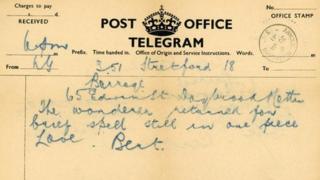 Charges to pay
s. d.
RECEIVED
POST OFFICE
TELEGRAM
OFFICE STAMP
Prefix. Time handed in. Office of Origin and Service Instructions. Words.
At
To
From
By
3.51 Stretford 18
65 Edwin St Daybrook
The wonderer returned for
brief spell still in one piece
Love. Bert.